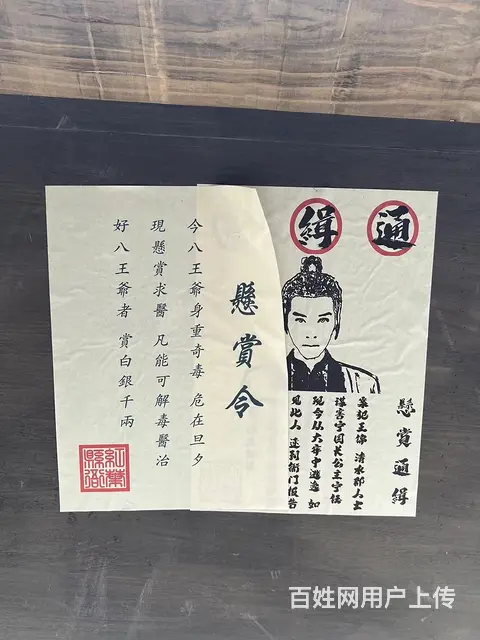 通緝
懸賞通緝
犯王 清水郡人士
谋害宁国长公主宇
现今从大牢中逃逸 如
见此人 速到衙门报告
懸賞令
今八王爺身重奇毒 危在旦夕
現懸賞求醫 凡能可解毒醫治
好八王爺者 賞白銀千兩
紅葉縣衙
百姓网用户上传